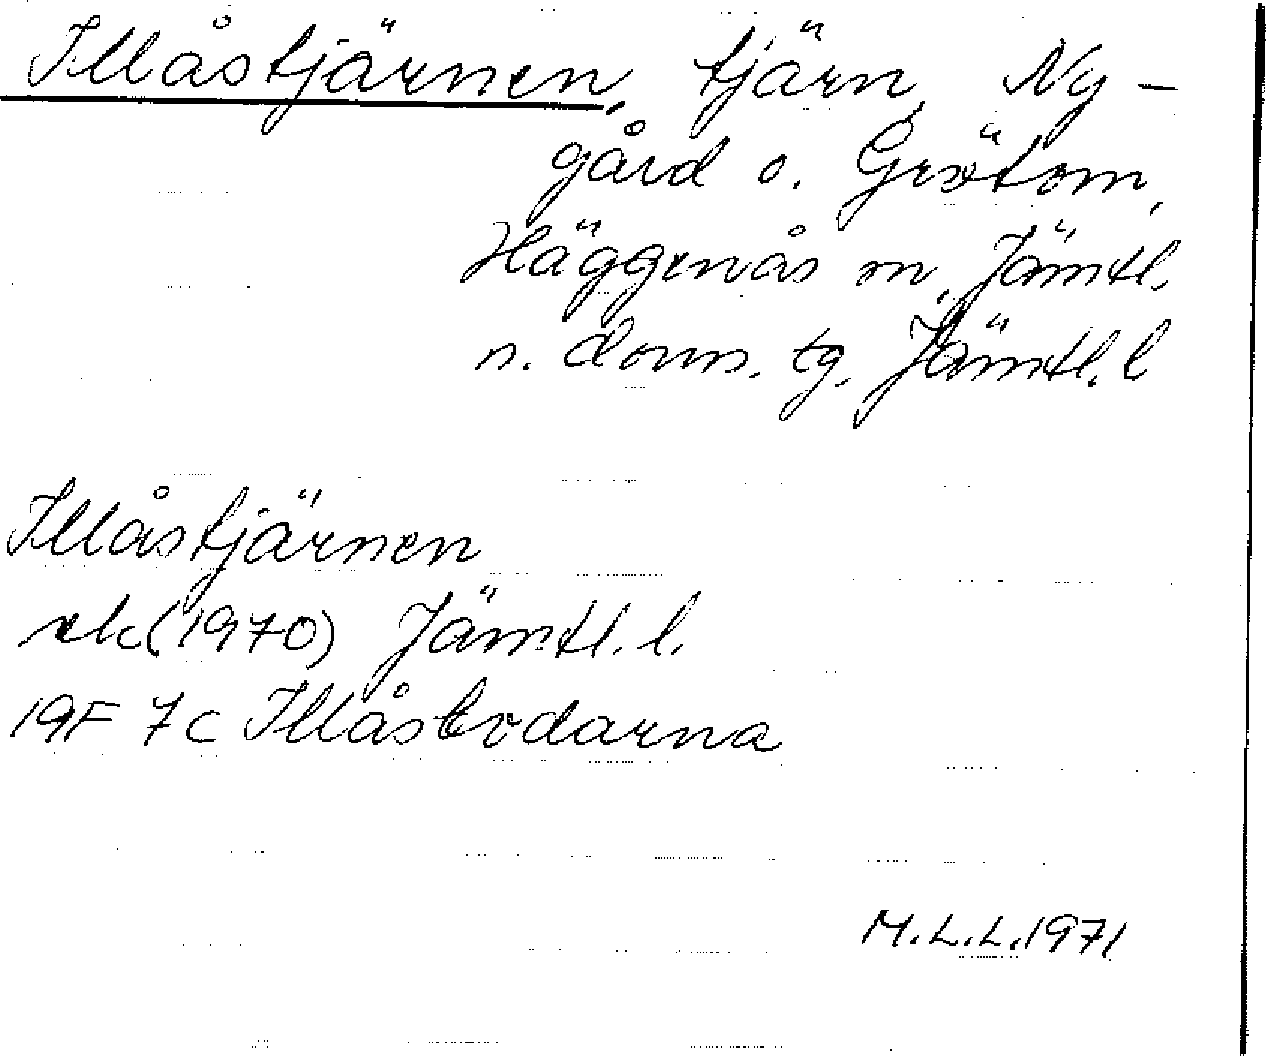 Illåstjärnen, tjärn, Ny-
gård o. Grötom,
Häggenås sn, Jämtl.
n. doms. tg. Jämtl. l
Illåstjärnen
ek (1970) Jämtl. l.
19F 7c Illåsbodarna
M.L.L. 1971